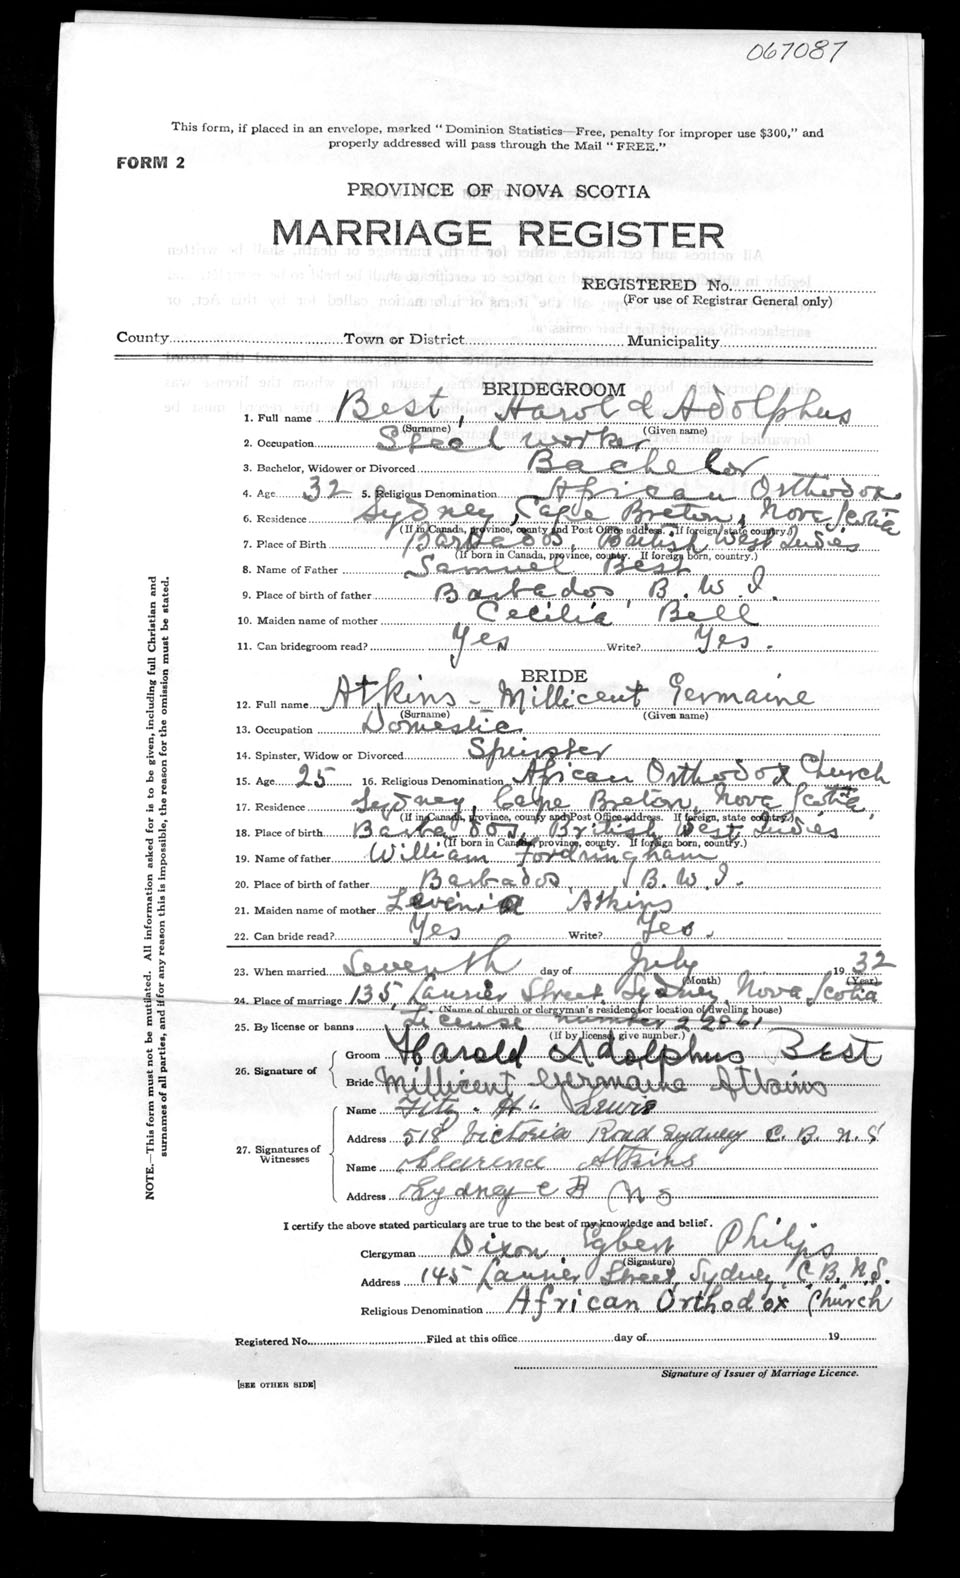 067087
This form, if placed in an envelope, marked "Dominion Statistics—Free, penalty for improper use $300," and
properly addressed will pass through the Mail "FREE."
FORM 2
PROVINCE OF NOVA SCOTIA
MARRIAGE REGISTER
REGISTERED No.
(For use of Registrar General only)
County Town or District Municipality
BRIDEGROOM
1. Full name Best, Harold Adolphus
(Surname) (Given name)
2. Occupation Steel worker
3. Bachelor, Widower or Divorced Bachelor
4. Age 32 5. Religious Denomination African Orthodox
6. Residence Sydney, Cape Breton, Nova Scotia
(If in Canada, province, county and Post Office address. If foreign, state country.)
7. Place of Birth Barbados, British West Indies
(If born in Canada, province, county. If foreign born, country.)
8. Name of Father Samuel Best
9. Place of birth of father Barbados, B.W.I.
10. Maiden name of mother Cecilia Bell
11. Can bridegroom read? Yes Write? Yes.
BRIDE
12. Full name Atkins - Millicent Germaine
(Surname) (Given name)
13. Occupation Domestic
14. Spinster, Widow or Divorced Spinster
15. Age 25 16. Religious Denomination African Orthodox Church
17. Residence Sydney, Cape Breton, Nova Scotia
(If in Canada, province, county and Post Office address. If foreign, state country.)
18. Place of birth Barbados, British West Indies
(If born in Canada, province, county. If foreign born, country.)
19. Name of father William Fordringham
20. Place of birth of father Barbados, B.W.I.
21. Maiden name of mother Atkins
22. Can bride read? Yes Write? Yes.
23. When married Seventh day of July 1932
(Month) (Year)
24. Place of marriage 135, Laurier Street, Sydney, Nova Scotia
(Name of church or clergyman's residence or location of dwelling house)
25. By license or banns License number 22061
(If by license, give number.)
26. Signature of
Groom Harold Adolphus Best
Bride Millicent Germaine Atkins
27. Signatures of Witnesses
Name Fitz. H. Lewis
Address 518 Victoria Road Sydney C.B. N.S
Name Clarence Atkins
Address Sydney C B N S
I certify the above stated particulars are true to the best of my knowledge and belief.
Clergyman Dixon Egbert Philips
(Signature)
Address 145 Laurier Street, Sydney, C.B. N.S.
Religious Denomination African Orthodox Church
Registered No. Filed at this office day of 19
Signature of Issuer of Marriage Licence.
[SEE OTHER SIDE]
NOTE.—This form must not be mutilated. All information asked for is to be given, including full Christian and
surnames of all parties, and if for any reason this is impossible, the reason for the omission must be stated.